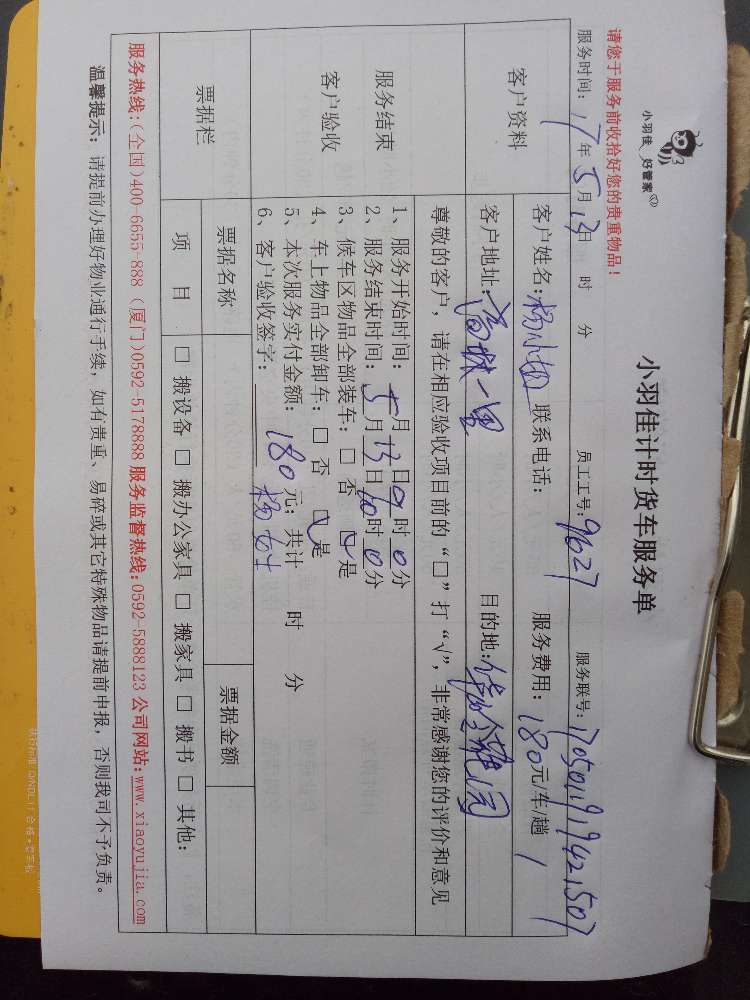 小羽佳 好管家
小羽佳计时货车服务单
请您于服务前收拾好您的贵重物品！
服务时间：17年5月13日 时 分 员工工号：9627 服务联号：
客户资料
客户姓名：杨小姐 联系电话： 服务费用：180元/车/趟
客户地址： 一里 目的地：
服务结束
客户验收
尊敬的客户，请在相应验收项目前的“□”打“√”，非常感谢您的评价和意见
1、服务开始时间： 月 日9时0分
2、服务结束时间：5月13日10时0分
3、候车区物品全部装车：□否 ☑是
4、车上物品全部卸车：□否 ☑是
5、本次服务实付金额：180元；共计 时 分
6、客户验收签字：杨女士
票据栏
票据名称 票据金额
项 目 □搬设备 □搬办公家具 □搬家具 □搬书 □其他：
服务热线：(全国)400-6655-888 (厦门)0592-5178888 服务监督热线：0592-5888123 公司网站：www.xiaoyujia.com
温馨提示：请提前办理好物业通行手续，如有贵重、易碎或其它特殊物品请提前申报，否则我司不予负责。